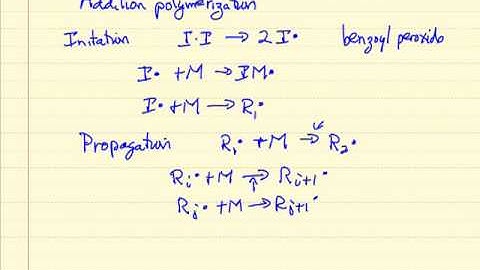 Addition polymerization
Initation I·I → 2I• benzoyl peroxide
I• + M → IM•
I• + M → R₁•
Propagation R₁• + M → R₂•
Rᵢ• + M → Rᵢ₊₁•
Rⱼ• + M → Rⱼ₊₁•